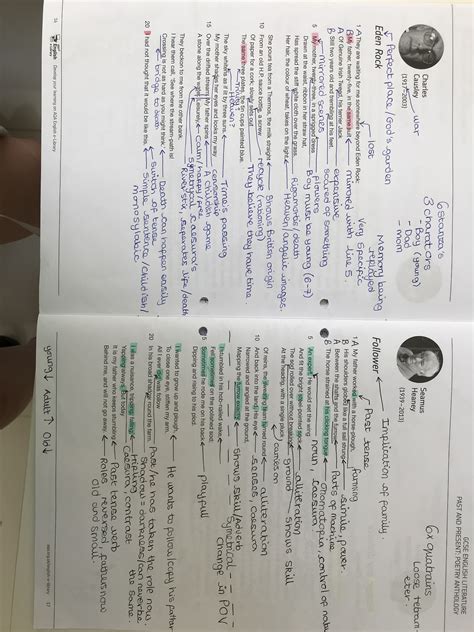 Charles
Causley
(1917–2003)
war
6 stanza's
3 charators
- Boy (young)
- Dad
- mom
Perfect place / God's garden
Eden Rock
lost
Memory being
replayed
They are waiting for me somewhere beyond Eden Rock:
Very specific
My father, twenty-five, in the same suit
mirrored with line 5.
Of Genuine Irish Tweed, his terrier Jack
expensive
Still two years old and trembling at his feet.
scared of something
mirrored stanzas
flowers
5 My mother, twenty-three, in a sprigged dress
Boy must be young (6-7)
Drawn at the waist, ribbon in her straw hat,
Has spread the stiff white cloth over the grass.
Her hair, the colour of wheat, takes on the light.
Heaven/angelic images.
She pours tea from a Thermos, the milk straight
Shows British origin
10 From an old H.P. sauce bottle, a screw
Of paper for a cork; slowly sets out
They believe they have time.
The same three plates, the tin cups painted blue.
Heaven?
The sky whitens as if lit by three suns.
Time's passing
My mother shades her eyes and looks my way
15 Over the drifted stream. My father spins
A childish game
A stone along the water. Leisurely,
Calm/happy/free
They beckon to me from the other bank.
River/stix, seperates life/death
I hear them call, 'See where the stream-path is!
Crossing is not as hard as you might think.'
Death can happen easily
bridge to death
Switch of tense
20 I had not thought that it would be like this.
Simple sentence / childish /
monosylabic
16
GCSE ENGLISH LITERATURE
PAST AND PRESENT: POETRY ANTHOLOGY
Seamus
Heaney
(1939–2013)
6x quatrains
Implication of family.
Follower
Past tense
farming
My father worked with a horse-plough,
His shoulders globed like a full sail strung
simile, power.
Between the shafts and the furrow.
Parts of machine
The horses strained at his clicking tongue.
onomatopoeia, control of
5 An expert. He would set the wing
noun, caesura
And fit the bright steel-pointed sock.
alliteration
The sod rolled over without breaking.
ground
Shows skill
At the headrig, with a single pluck
carries on
Of reins, the sweating team turned round
alliteration
10 And back into the land. His eye
senses, caesura
Narrowed and angled at the ground,
Mapping the furrow exactly.
Shows skill/Adverb
Symetrical
Change in POV
I stumbled in his hob-nailed wake,
Fell sometimes on the polished sod;
15 Sometimes he rode me on his back
playfull
Dipping and rising to his plod.
I wanted to grow up and plough,
He wants to follow/copy his father
To close one eye, stiffen my arm.
All I ever did was follow
Past, he has taken the role now.
20 In his broad shadow round the farm.
Shadow = darkness/can never be
the same.
I was a nuisance, tripping, falling,
Yapping always. But today
Caesura, contrast
It is my father who keeps stumbling
Past tense verb
Behind me, and will not go away.
Roles reversed, father's now
old and small.
young ↓ Adult ↑ Old ↓
17